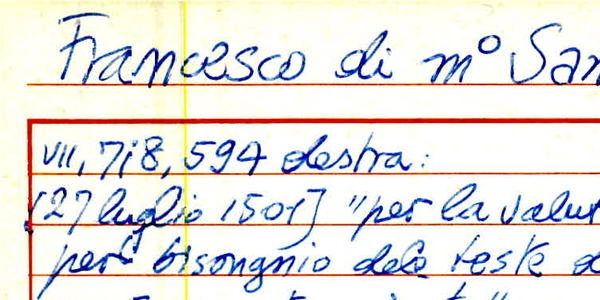 Francesco di mº San
VII, 718, 594 destra:
[27 luglio 1501] "per la valut
per bisongnio dele teste d